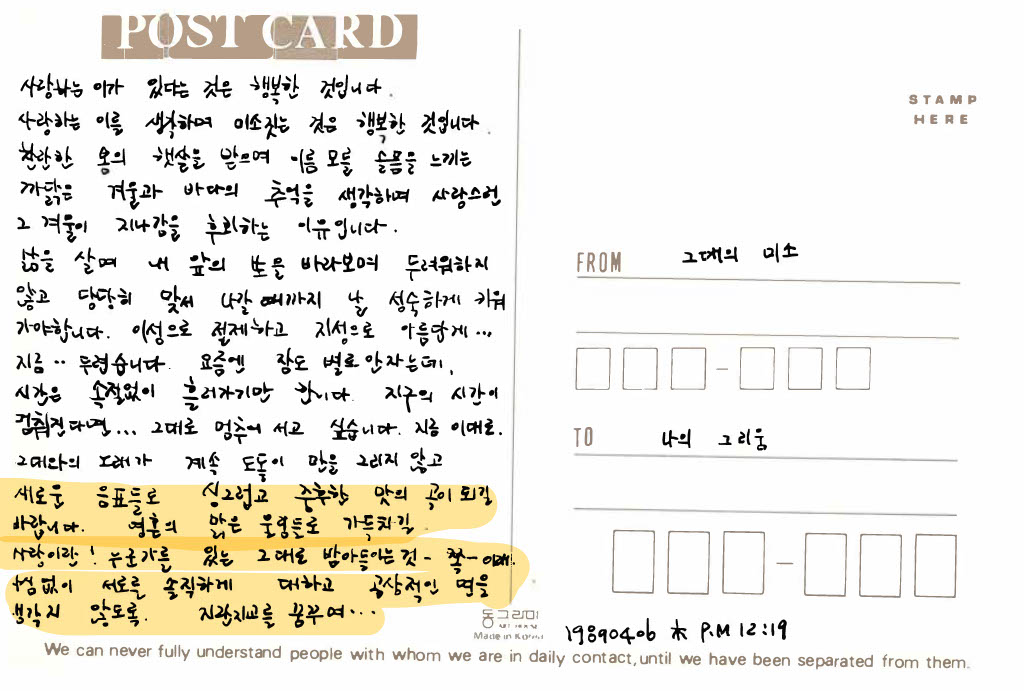 POST CARD
사랑하는 이가 있다는 것은 행복한 것입니다.
사랑하는 이를 생각하며 미소짓는 것은 행복한 것입니다.
찬란한 봄의 햇살을 받으며 이름 모를 슬픔을 느끼는
까닭은 겨울과 바다의 추억을 생각하며 사랑스런
그 겨울이 지나감을 후회하는 이유입니다.
삶을 살며 내 앞의 생을 바라보며 두려워하지
않고 당당히 맞서 나갈 때까지 날 성숙하게 키워
가야합니다. 이성으로 절제하고 지성으로 아름답게...
지금.. 두렵습니다. 요즘엔 잠도 별로 안자는데,
시간은 속절없이 흘러가기만 합니다. 지구의 시간이
멈춰진다면... 그대로 멈추어 서고 싶습니다. 지금 이대로.
그대와의 노래가 계속 도돌이 만을 그리지 않고
새로운 음표들로 싱그럽고 중후한 맛의 곡이 되길
바랍니다. 영혼의 맑은 울림들로 가득차길.
사랑이란! 누군가를 있는 그대로 받아들이는 것- 쭉- 이대로
없이 서로를 솔직하게 대하고 공상적인 면을
생각지 않도록. 지란지교를 꿈꾸며...
STAMP
HERE
FROM 그대의 미소
TO 나의 그리움
동그라미
Made in Korea
19890406 木 P.M 12:19
We can never fully understand people with whom we are in daily contact, until we have been separated from them.